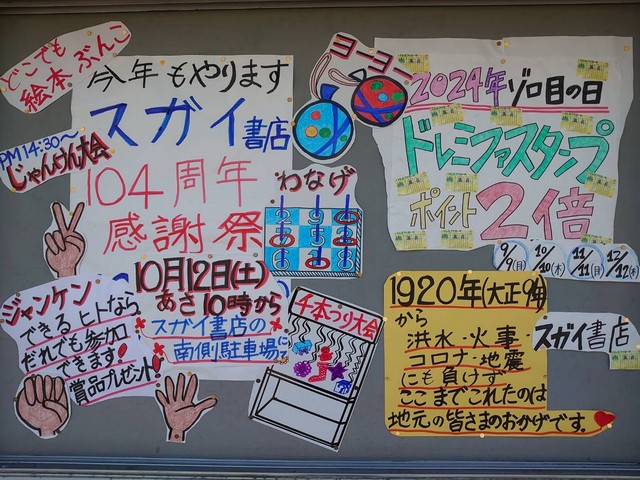 どこでも
絵本ぶんこ
今年もやります
スガイ書店
104周年
感謝祭
PM14:30〜
じゃんけん大会
10月12日(土)
あさ10時から
スガイ書店の
南側駐車場に
ジャンケン
できるヒトなら
だれでも参加
できます!
賞品プレゼント!
ヨーヨー
わなげ
千本つり大会
2024年ゾロ目の日
ドレミファスタンプ
ポイント2倍
9/9(月)
10/10(木)
11/11(月)
12/12(木)
1920年(大正9年)
から
洪水・火事
コロナ・地震
にも負けず
ここまでこれたのは
地元の皆さまのおかげです。
スガイ書店